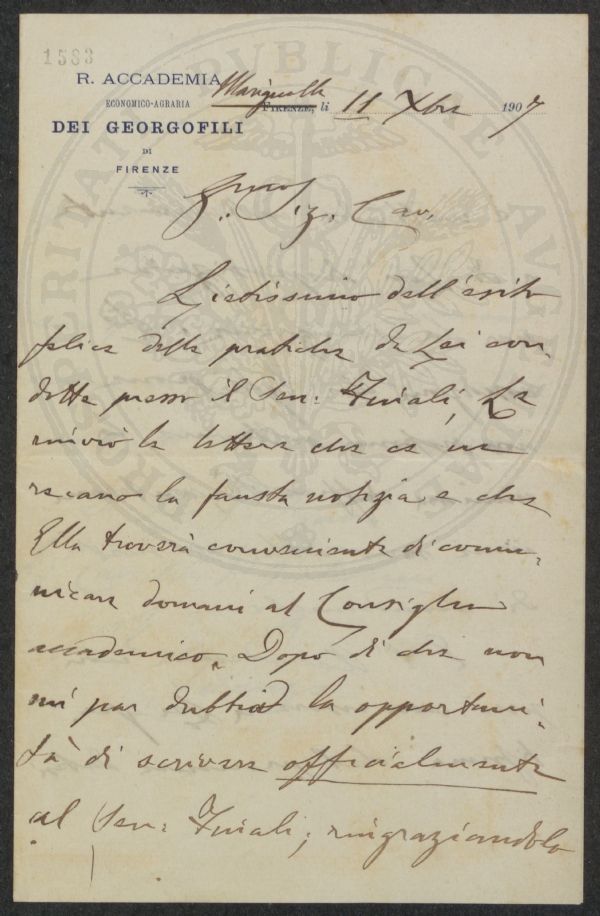 1583
R. ACCADEMIA
ECONOMICO-AGRARIA
DEI GEORGOFILI
DI
FIRENZE
Marignolle FIRENZE, li 11 Xbre 1907
Sig. Cav.
Lietissimo dell'esito
felice delle pratiche da Lei con-
dotte presso il Sen. Finali, Le
rinvio le lettere che ce ne
recano la fausta notizia e che
Ella troverà conveniente di comu-
nicare domani al Consiglio
accademico. Dopo di che non
mi par dubbia la opportuni-
tà di scrivere officialmente
al Sen. Finali, ringraziandolo
PROSPERITATI PUBLICAE AUGENDAE